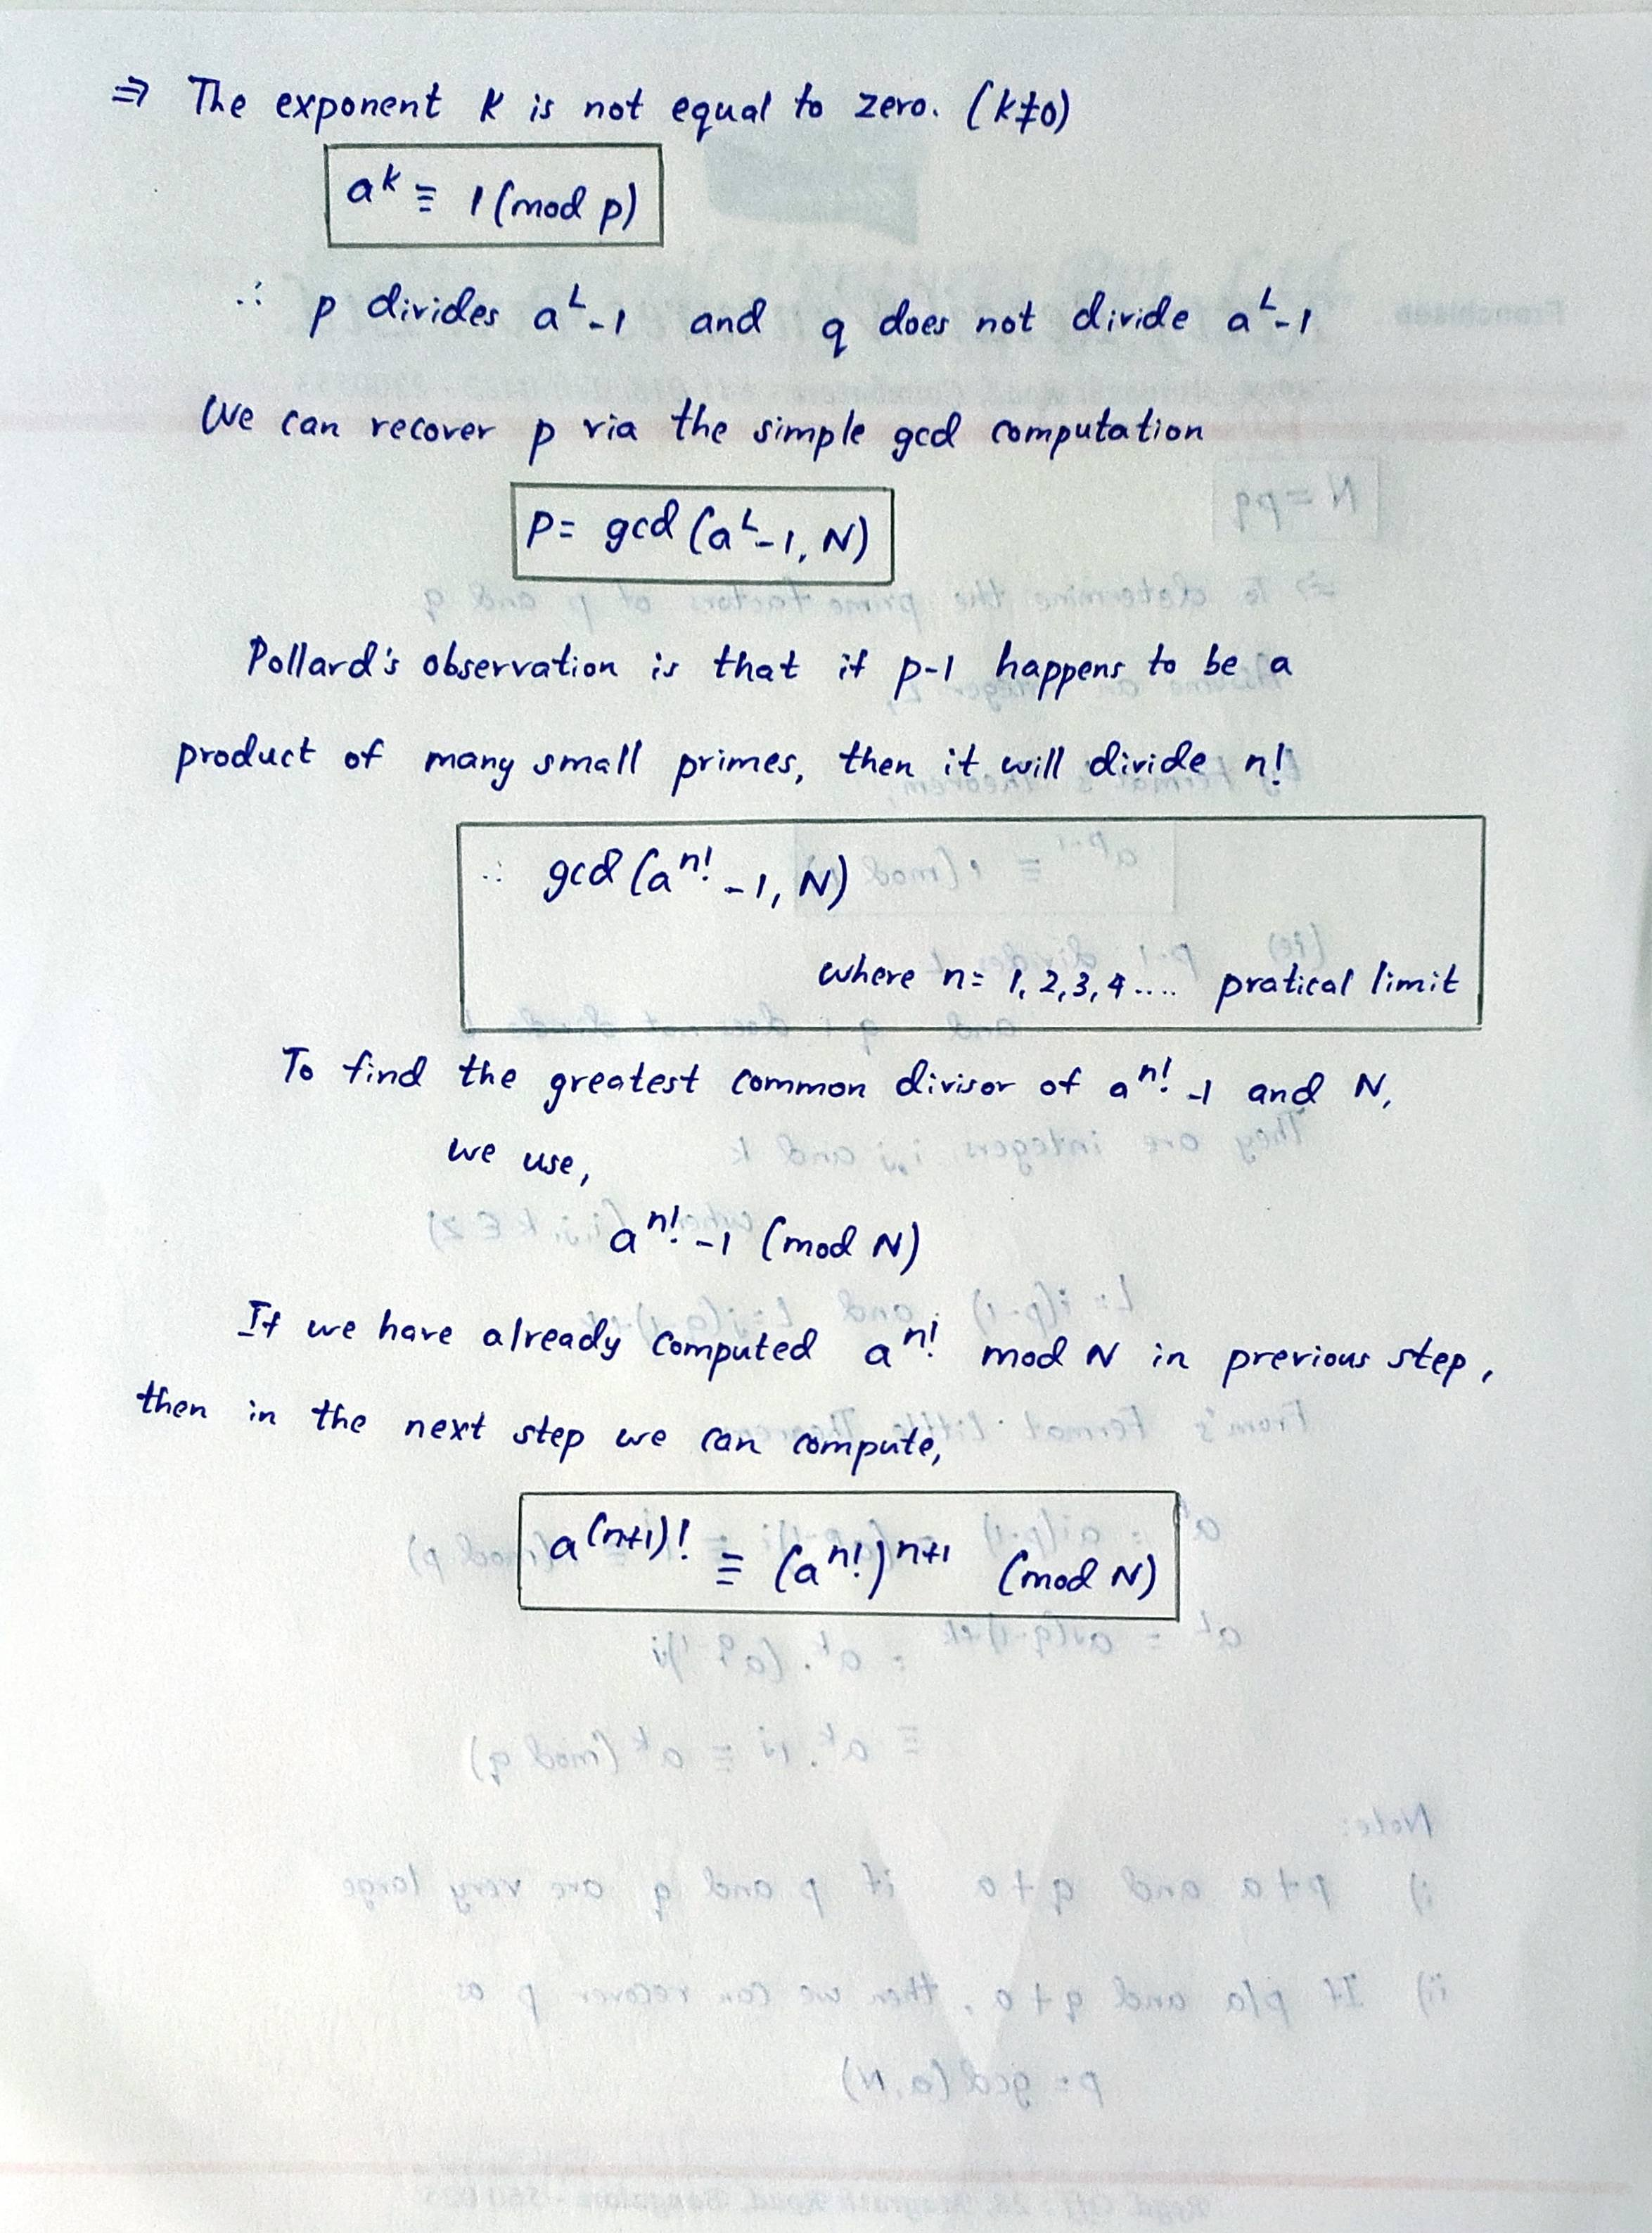 ⇒ The exponent k is not equal to zero. (k≠0)
a^k ≡ 1 (mod p)
∴ p divides a^L-1 and q does not divide a^L-1
We can recover p via the simple gcd computation
P= gcd (a^L-1, N)
Pollard's observation is that if p-1 happens to be a
product of many small primes, then it will divide n!
∴ gcd (a^n! -1, N)
where n= 1, 2, 3, 4 .... pratical limit
To find the greatest common divisor of a^n! -1 and N,
we use,
a^n! -1 (mod N)
If we have already computed a^n! mod N in previous step,
then in the next step we can compute,
a^(n+1)! ≡ (a^n!)^n+1 (mod N)